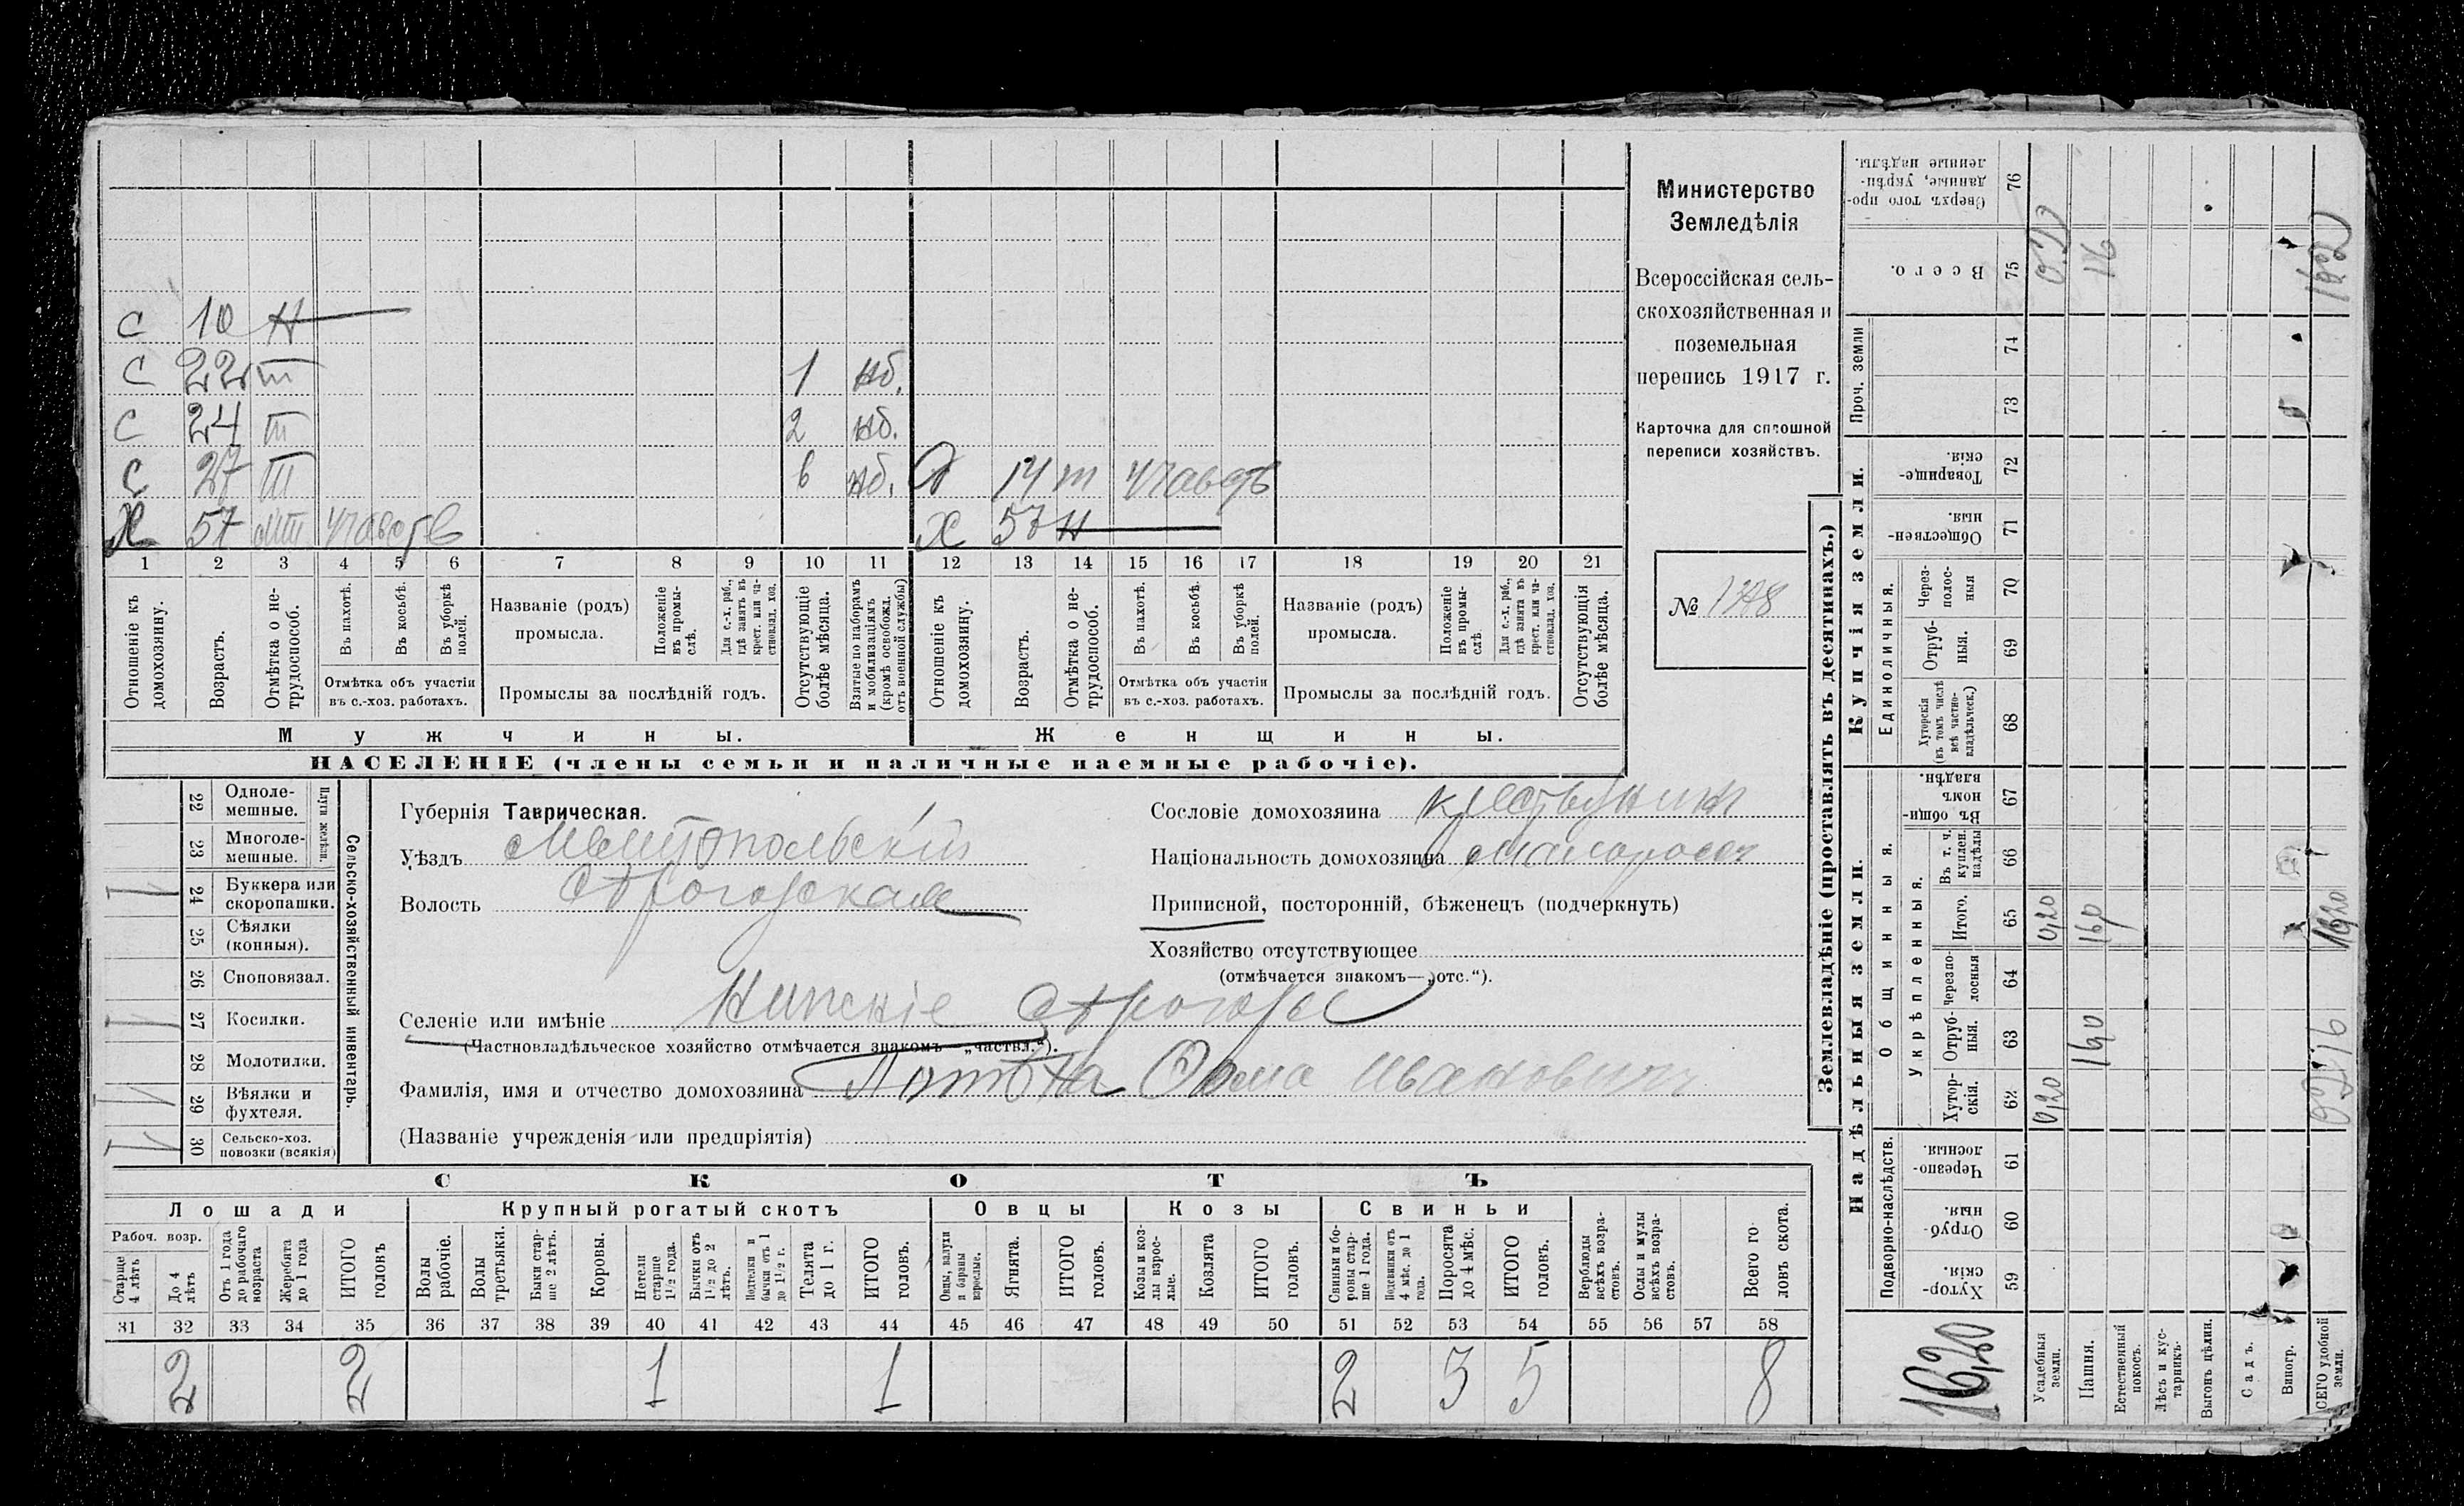 С 10 Н
С 22 III 1 нб.
С 24 III 2 нб.
С 27 III 6 нб. Д 14 m участв
Х 57 участв Х 57 Н
1 2 3 4 5 6 7 8 9 10 11 12 13 14 15 16 17 18 19 20 21
Отношеніе къ домохозяину.
Возрастъ.
Отмѣтка о не-трудоспособ.
Въ пахотѣ.
Въ косьбѣ.
Въ уборкѣ полей.
Отмѣтка объ участіи въ с.-хоз. работахъ.
Названіе (родъ) промысла.
Положеніе въ промы-слѣ.
Для с.-х. раб., гдѣ занятъ въ крест. или ча-стновлад. хоз.
Промыслы за послѣдній годъ.
Отсутствующіе болѣе мѣсяца.
Взятые по наборамъ и мобилизаціямъ (кромѣ освобожд. отъ военной службы)
Отношеніе къ домохозяину.
Возрастъ.
Отмѣтка о не-трудоспособ.
Въ пахотѣ.
Въ косьбѣ.
Въ уборкѣ полей.
Отмѣтка объ участіи въ с.-хоз. работахъ.
Названіе (родъ) промысла.
Положеніе въ промы-слѣ.
Для с.-х. раб., гдѣ занята въ крест. или ча-стновлад. хоз.
Промыслы за послѣдній годъ.
Отсутствующія болѣе мѣсяца.
Мужчины.
Женщины.
НАСЕЛЕНІЕ (члены семьи и наличные наемные рабочіе).
Министерство
Земледѣлія
Всероссійская сель-
скохозяйственная и
поземельная
перепись 1917 г.
Карточка для сплошной
переписи хозяйствъ.
№ 178
Сельско-хозяйственный инвентарь.
Плуги желѣзн.
22 Одноле-мешные.
23 Многоле-мешные.
24 Буккера или скоропашки. 1
25 Сѣялки (конныя).
26 Сноповязал.
27 Косилки. 1
28 Молотилки.
29 Вѣялки и фухтеля.
30 Сельско-хоз. повозки (всякія) 1
Губернія Таврическая.
Уѣздъ Мелитопольскій
Волость
Сословіе домохозяина
Національность домохозяина малороссъ
Приписной, посторонній, бѣженецъ (подчеркнуть)
Хозяйство отсутствующее
(отмѣчается знакомъ—„отс.“).
Селеніе или имѣніе
(Частновладѣльческое хозяйство отмѣчается знакомъ „частвл.“).
Фамилія, имя и отчество домохозяина Фома Ивановичъ
(Названіе учрежденія или предпріятія)
СКОТЪ
Лошади
Крупный рогатый скотъ
Овцы
Козы
Свиньи
Рабоч. возр.
Старше 4 лѣтъ
До 4 лѣтъ
Отъ 1 года до рабочаго возраста
Жеребята до 1 года
ИТОГО головъ
Волы рабочіе.
Волы третьяки.
Быки стар-ше 2 лѣтъ.
Коровы.
Нетели старше 1½ года.
Бычки отъ 1½ до 2 лѣтъ.
Подтелки и бычки отъ 1 до 1½ г.
Телята до 1 г.
ИТОГО головъ.
Овцы, валухи и бараны взрослые.
Ягнята.
ИТОГО головъ.
Козы и коз-лы взрос-лые.
Козлята
ИТОГО головъ.
Свиньи и бо-ровы стар-ше 1 года.
Подсвинки отъ 4 мѣс. до 1 года.
Поросята до 4 мѣс.
ИТОГО головъ.
Верблюды всѣхъ возра-стовъ.
Ослы и мулы всѣхъ возра-стовъ.
Всего го-ловъ скота.
31 32 33 34 35 36 37 38 39 40 41 42 43 44 45 46 47 48 49 50 51 52 53 54 55 56 57 58
2 2 1 1 2 3 5 8
Землевладѣніе (проставлять въ десятинахъ.)
Надѣльныя земли.
Купчія земли.
Проч. земли
Подворно-наслѣдств.
Общинныя.
Укрѣпленныя.
Единоличныя.
Хутор-скія. 59
Отруб-ныя. 60
Черезпо-лосныя. 61
Хутор-скія. 62
Отруб-ныя. 63
Черезпо-лосныя 64
Итого. 65
Въ т. ч. куплен. надѣлы 66
Въ общин-номъ владѣн. 67
Хуторскія (въ томъ числѣ всѣ частно-владѣльческ.) 68
Отруб-ныя. 69
Через-полос-ныя 70
Обществен-ныя. 71
Товарище-скія. 72
73
74
Всего. 75
Сверхъ того про-данные, укрѣп-ленные надѣлы. 76
16,20
Усадебныя земли. 0,20 0,20
Пашня. 16,0 16,0 16
Естественный покосъ.
Лѣсъ и кус-тарникъ.
Выгонъ цѣлин.
Садъ.
Виногр.
ВСЕГО удобной земли. 16,20